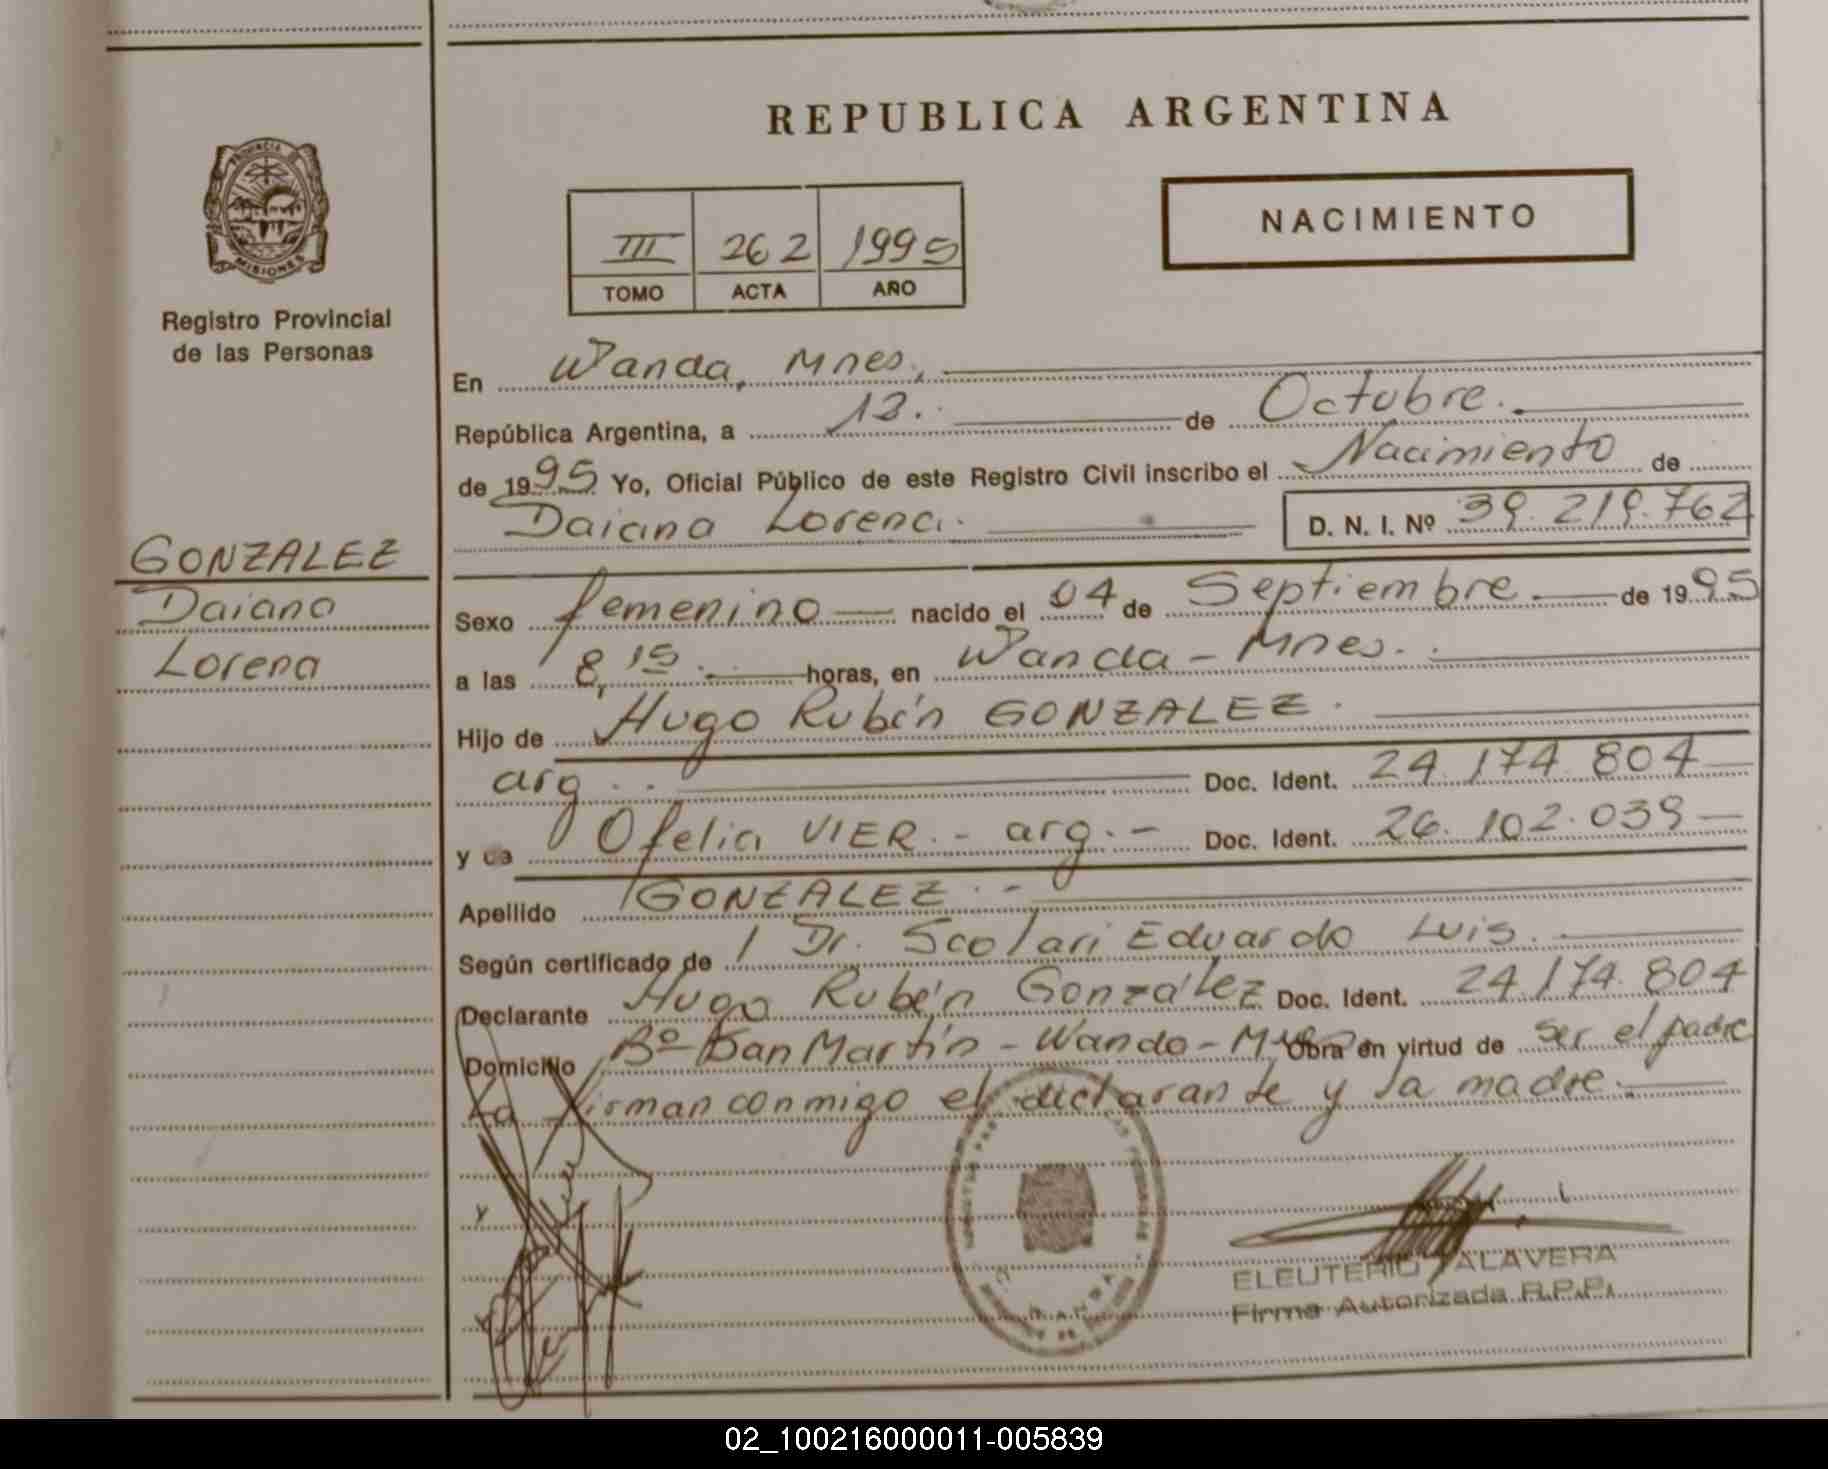 REPUBLICA ARGENTINA
NACIMIENTO
III 262 1995
TOMO ACTA AÑO
PROVINCIA DE
MISIONES
Registro Provincial
de las Personas
GONZALEZ
Daiana
Lorena
En Wanda, Mnes.,
República Argentina, a 12. de Octubre.
de 1995 Yo, Oficial Público de este Registro Civil inscribo el Nacimiento de
Daiana Lorena. D. N. I. Nº 39.219.762
Sexo femenino nacido el 04 de Septiembre de 1995
a las 8,15. horas, en Wanda - Mnes.
Hijo de Hugo Rubén GONZALEZ.
arg. Doc. Ident. 24.174.804
y de Ofelia VIER. - arg. - Doc. Ident. 26.102.039
Apellido GONZALEZ. -
Según certificado de Dr. Scolari Eduardo Luis.
Declarante Hugo Rubén González Doc. Ident. 24.174.804
Domicilio Bº San Martín - Wanda - Mnes Obra en virtud de ser el padre
La firman conmigo el declarante y la madre.
WANDA
ELEUTERIO TALAVERA
Firma Autorizada R.P.P.
02_100216000011-005839